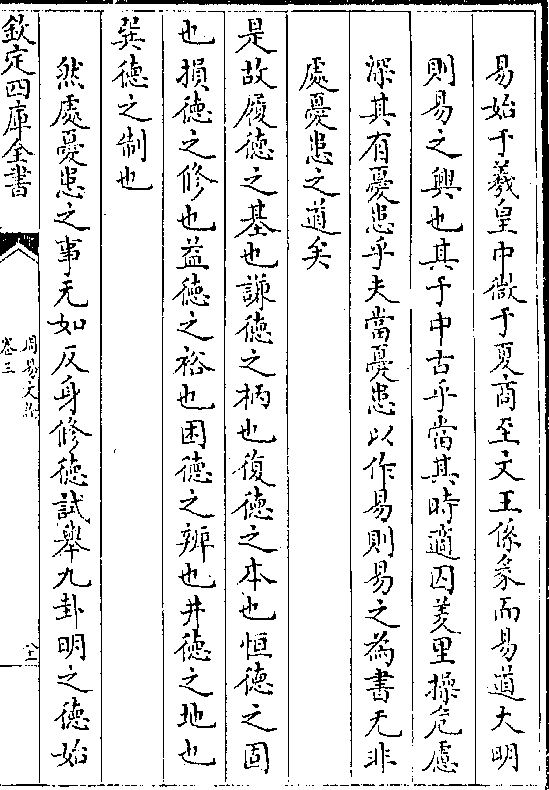 易始于羲皇中微于夏商至文王係彖而易道大明
則易之興也其于中古乎當其時適囚羑里操危慮
深其有憂患乎夫當憂患以作易則易之為書无非
處憂患之道矣
是故履徳之基也謙徳之柄也復徳之本也恒徳之固
也損徳之修也益徳之裕也困徳之辨也井徳之地也
巽徳之制也
然處憂患之事无如反身修徳試舉九卦明之徳始
欽定四庫全書
周易文詮
卷三